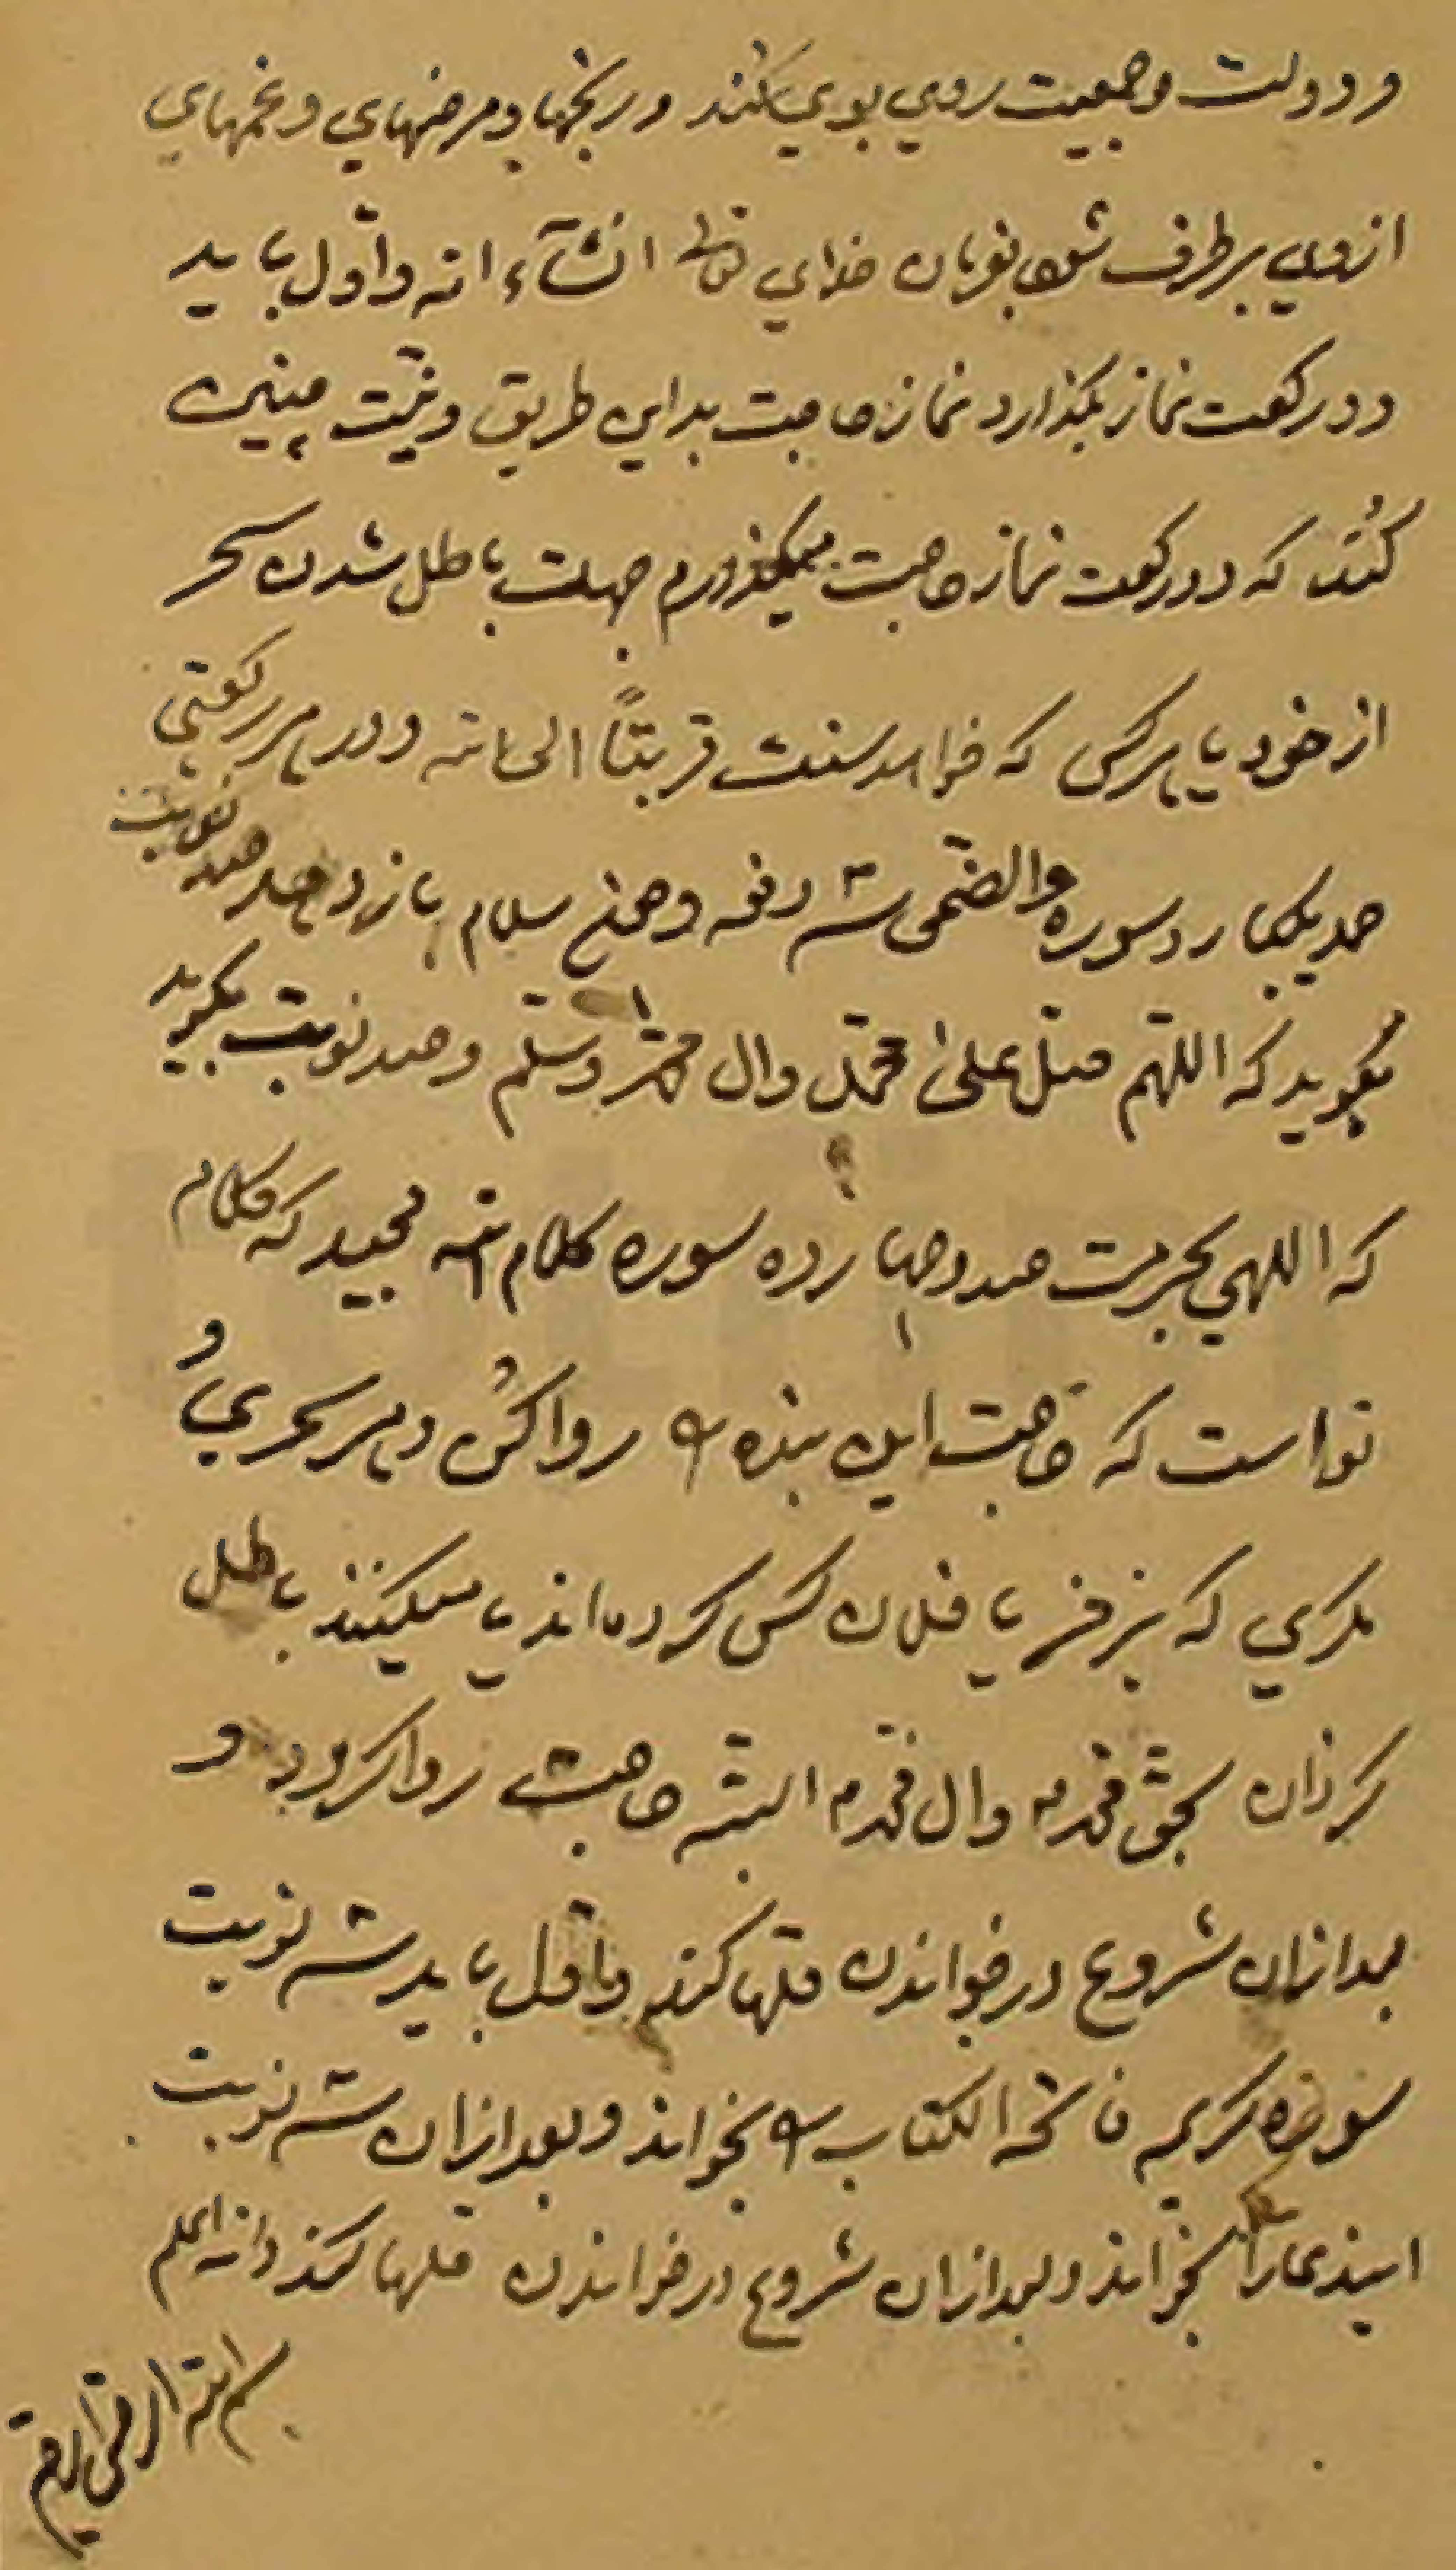 و دولت و جمعیت روی بوی کند و رنجها و مرضهای و غمهای
ازوی بر طرف شود بفرمان خدای تعالی انشآء الله و اوّل باید
دو رکعت نماز بگذارد نماز حاجت بداین طریق و نیّت چنین
کُند که دو رکعت نماز حاجت میگذارم جهت باطل شدن سحر
از خود یا هرکس که خواهد سنت قربتاً الی الله و در هر رکعتی
حمد یکبار و سوره والضحی سه دفعه و سلام باز دهد صد نوبت
بگوید که اللّهم صلّ علیٰ محمّد وال محمّد وسلّم و صد نوبت بگوید
که اللهی بحرمت صد و چهارده سوره کلام الله مجید که کلام
تو است که حاجت این بنده را روا کُن و هر سحری و
مکری که بر فلان کس کرده‌اند یا میکنند باطل
گردان بحق محمّد وال محمّد البته حاجت روا گردد و
بعد ازان شروع در خواندن قلها کند و اوّل باید سه نوبت
سوره کریمه فاتحه الکتاب را بخواند و بعد ازان سه نوبت
بخواند و بعد ازان شروع در خواندن قلها کند والله اعلم
بسم الله الرحمن الرحیم